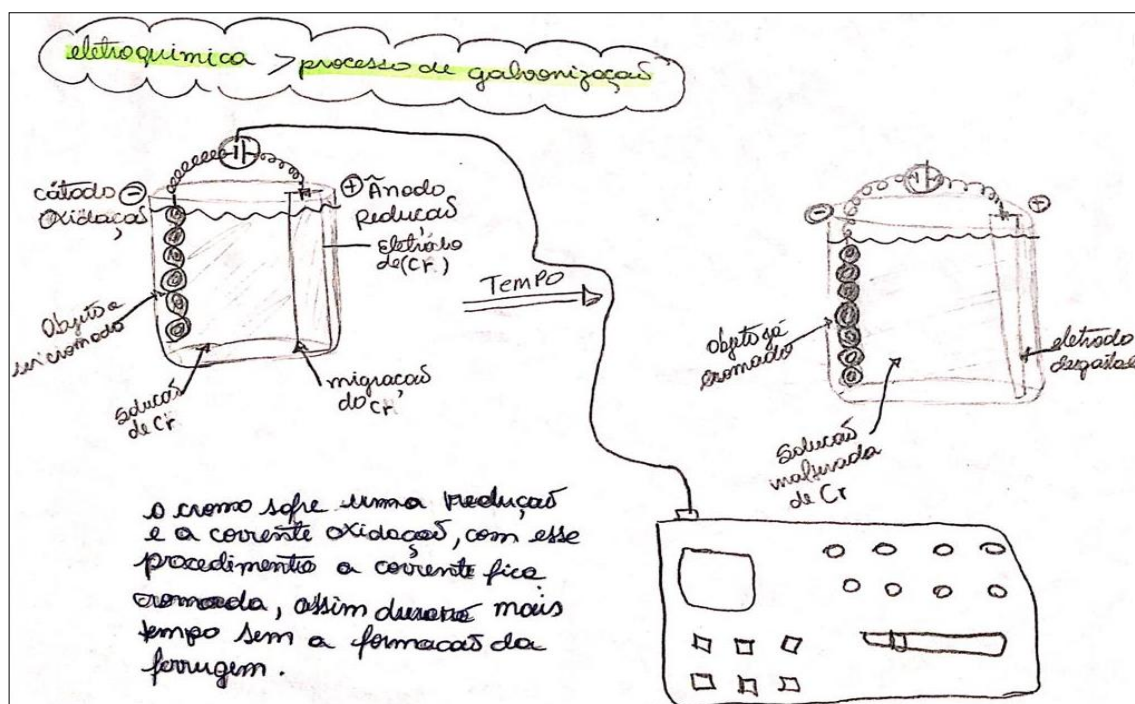 eletroquimica > processo de galvonização
cátodo ⊖
Oxidação
⊕ Ânodo
Redução
Eletrodo
de (Cr.)
Objeto a
ser cromado
Solução
de Cr
migração
do Cr
TEMPO
⊖
⊕
Objeto já
cromado
eletrodo
Solução
inalterada
de Cr
o cromo sofre uma redução
e a corrente oxidação, com esse
procedimento a corrente fica
cromada, assim durará mais
tempo sem a formação da
ferrugem.